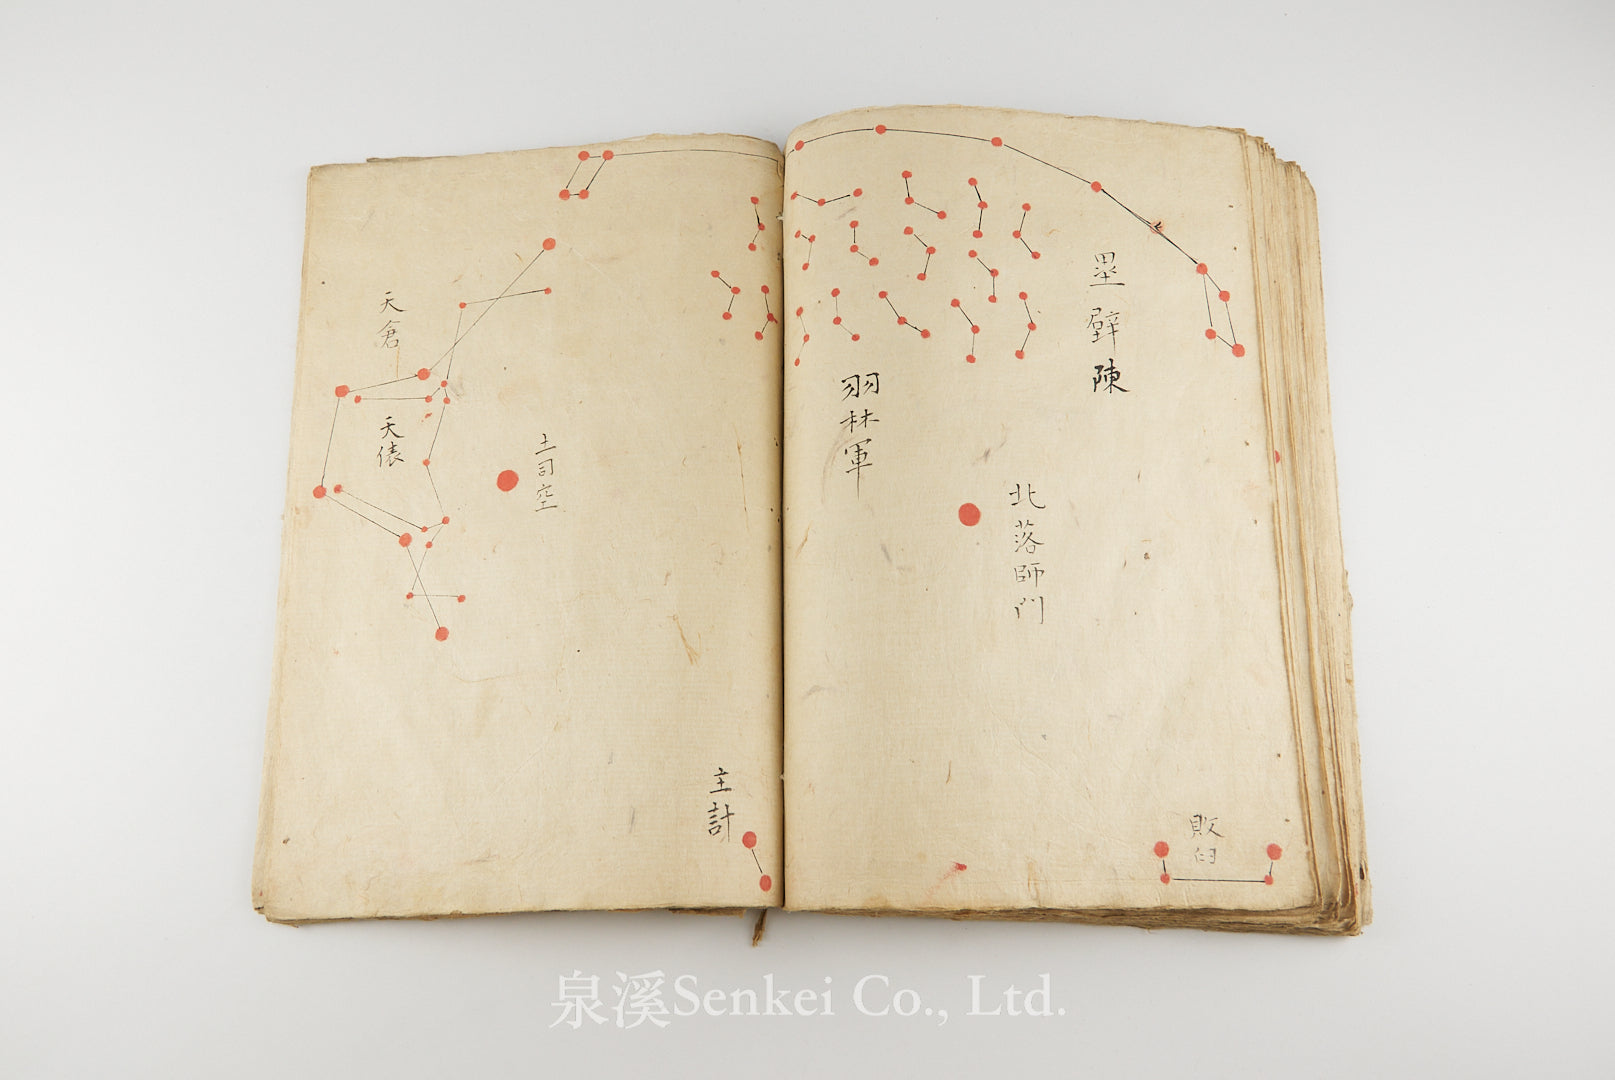 壘壁陳
羽林軍
北落師門
敗臼
土司空
天倉
天俵
主計
泉溪Senkei Co., Ltd.